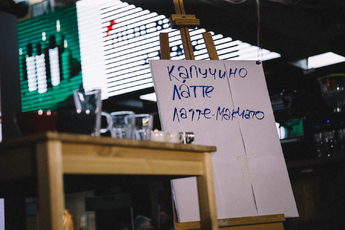 Капучино
Латте
Латте-Макиато